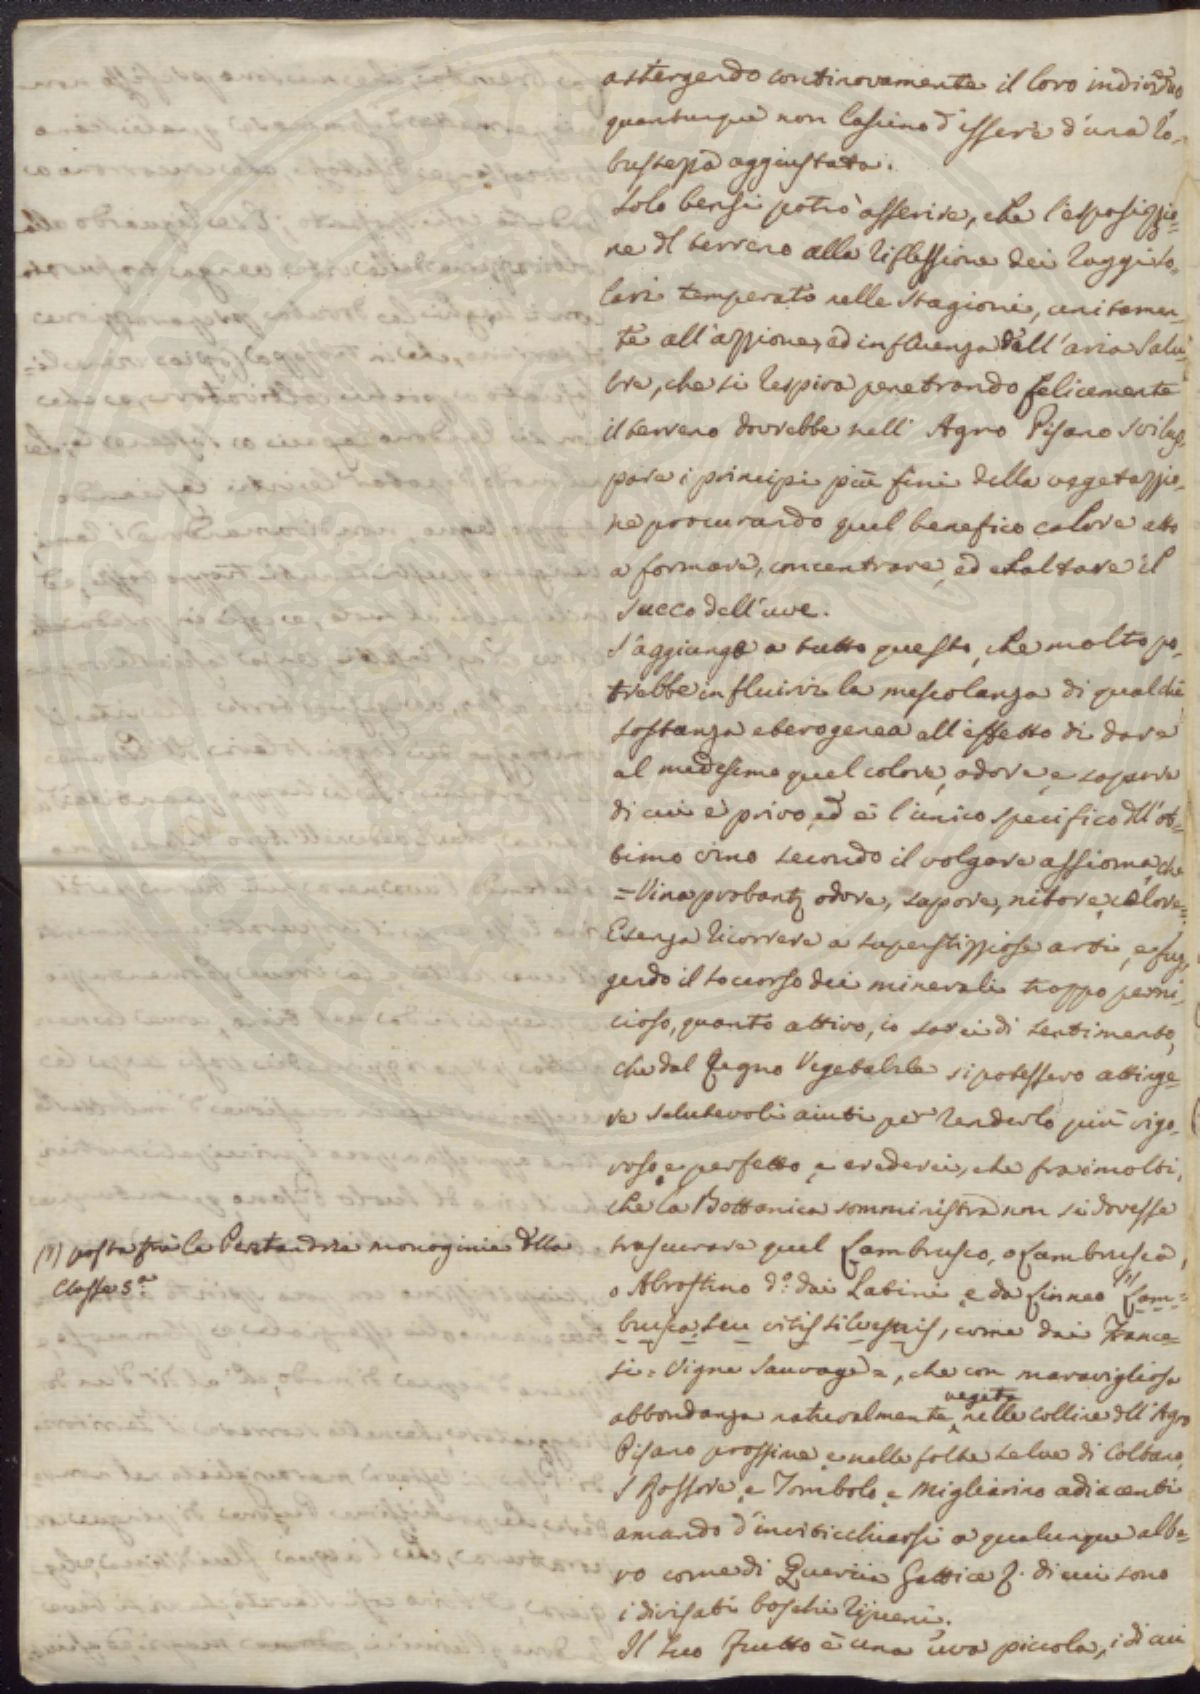 astergendo continovamente il loro individuo
quantunque non lascino d'essere d'una ro-
bustezza aggiustata.
Solo bensì potrò asserire, che l'esposizzio=
ne dl terreno alla riflessione dei raggi so-
lari temperato nelle stagioni, unitamen-
te all'azzione, ed influenza dell'aria salu-
bre, che si respira penetrando felicemente
il terreno dovrebbe nell' Agro Pisano svilup-
pare i principi più fini della vegetazzio-
ne procurando quel benefico calore atto
a formare, concentrare, ed esaltare il
succo dell'uve.
S'aggiunge a tutto questo, che molto po-
trebbe influirvi la mescolanza di qualche
sostanza eterogenea all'effetto di dare
al medesimo quel colore, odore, e sapore
di cui è privo, ed è l'unico specifico dll'ot-
timo vino secondo il volgare assioma, che
= Vina probantz odore, sapore, nitore, colore=
E senza ricorrere a superstizziose arti, e fug-
gendo il soccorso dei minerali troppo perni-
cioso, quanto attivo, io sarei di sentimento,
che dal Regno Vegetabile si potessero attinge-
re salutevoli aiuti per renderlo più vigo-
roso, e perfetto, e crederei, che fra i molti,
che la Bottanica somministra non si dovesse
trascurare quel Lambrusco, o Lambrusca,
o Abrostino d.º dai Latini, e da Linneo (1) Lam=
brusca seu vitis silvestris, come dai France-
si= Vigne Sauvage=, che con maravigliosa
abbondanza naturalmente vegeta nelle colline dll'Agro
Pisano prossime, e nelle folte selve di Coltano,
S. Rossore, e Tombolo, e Migliarino adiacenti
amando d'inviticchiarsi a qualunque albe-
ro come di Quercia Gattice &. di cui sono
i divisati boschi ripieni.
Il suo frutto è una uva piccola, i di cui
(1) posta frà le Pentandrie monoginie dlla
Classe 5.ª